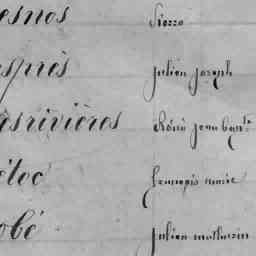 esnos Pierre
esprès Julien Joseph
esrivières Réné Jean Bapt.
étoc François Marie
obé Julien Mathurin